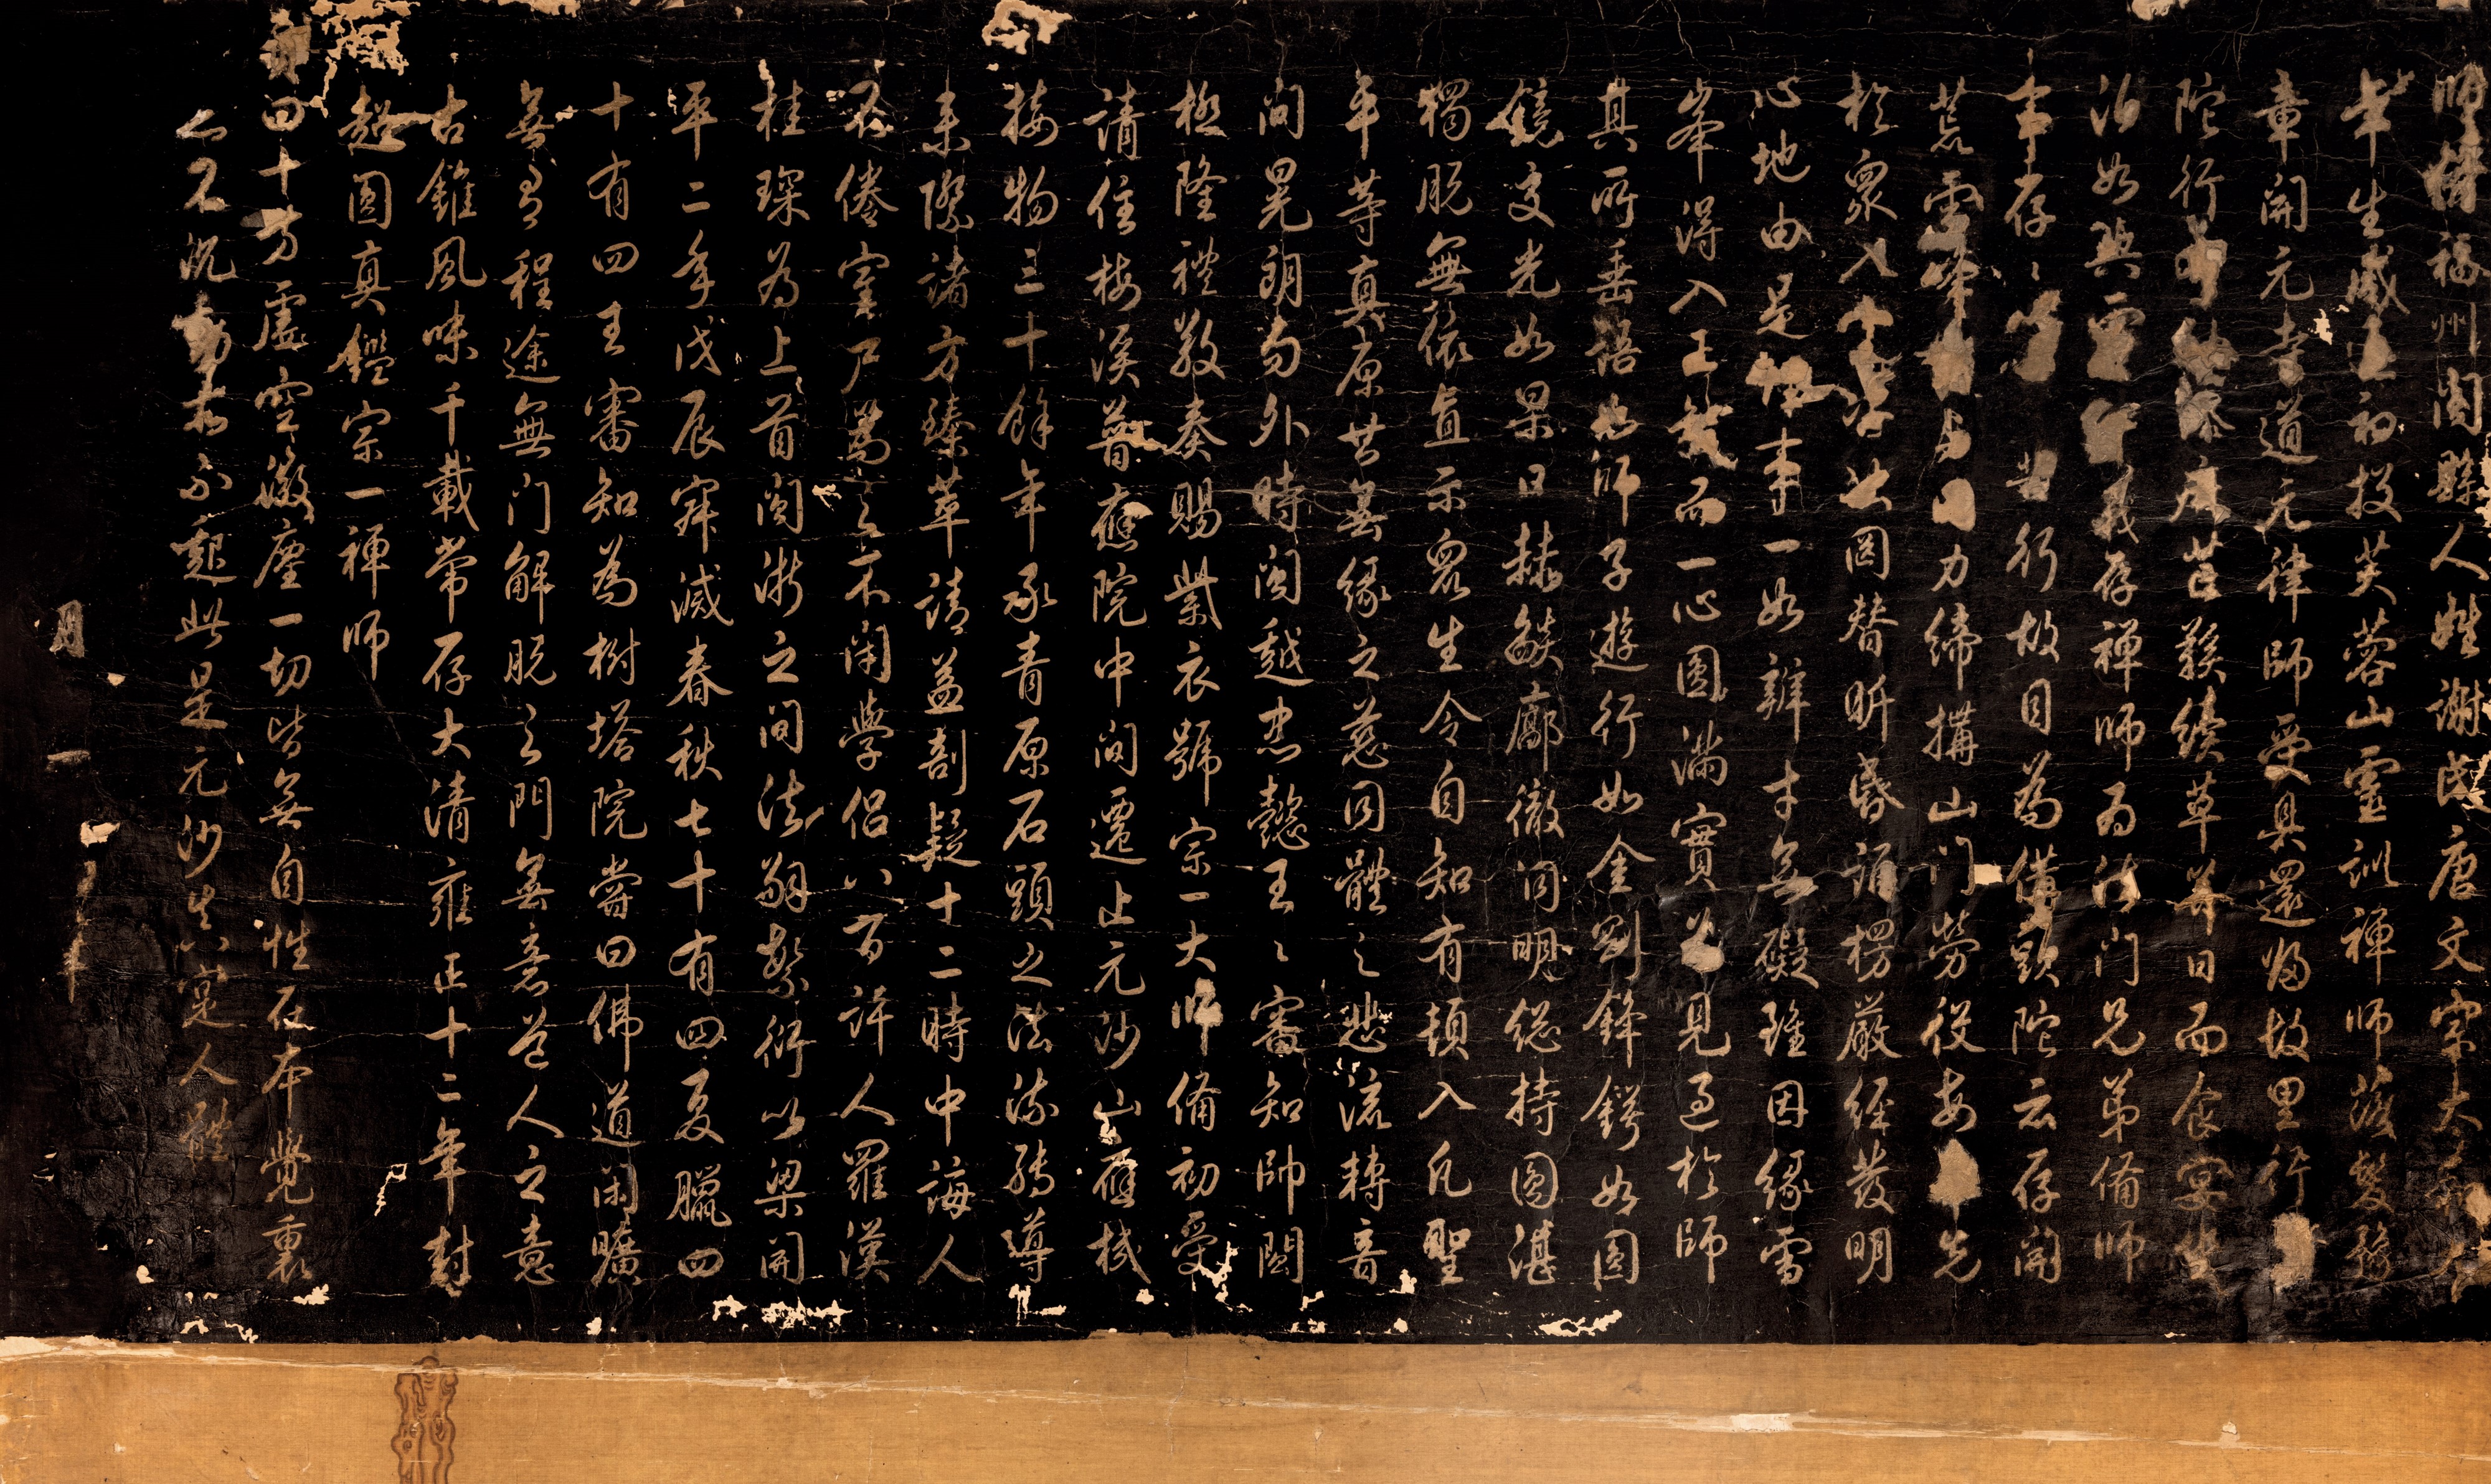 師諱 福州閩縣人姓謝氏唐文宗大
年生咸 初投芙蓉山靈訓禪師落髮豫
章開元寺道元律師受具還歸故里行
陀行 麻苧 續草 日而食宴坐
泊如與雪 義存禪師為法門兄弟備師
事存〻 苦行故目為備頭陀云存開
荒雪峰 力締搆山門勞役 先
於眾入 圓替昕昏誦楞嚴經發明
心地由是 事一如辯才無礙雖因緣雪
峯得入 而一心圓滿實 見過於師
其所垂語如師子遊行如金剛鋒鍔如圓
鏡交光如杲日赫燄廓徹洞明總持圓湛
獨脫無依直示眾生令自知有頓入凡聖
平等真原甘無緣之慈同體之悲流轉音
問晃朗前外時閩越忠懿王〻審知帥閩
極隆禮敬奏賜紫衣號宗一大師備初受
請住梅溪普應院中間遷止元沙山應機
接物三十餘年承青原石頭之法流轉導
來際諸方臻萃請益剖疑十二時中誨人
不倦室戶 不閑學侶八百許人羅漢
桂琛為上首閩浙之間法 繁衍以梁開
平二年戊辰寂滅春秋七十有四夏臘四
十有四王審知為樹塔院嘗曰佛道閑曠
無有程途無門解脫之門無意道人之意
古錐風味千載常存大清雍正十二年封
超圓真鑑宗一禪師
 曰十方虛空微塵一切皆無自性在本覺裏
不沉 不起此是元沙 人體